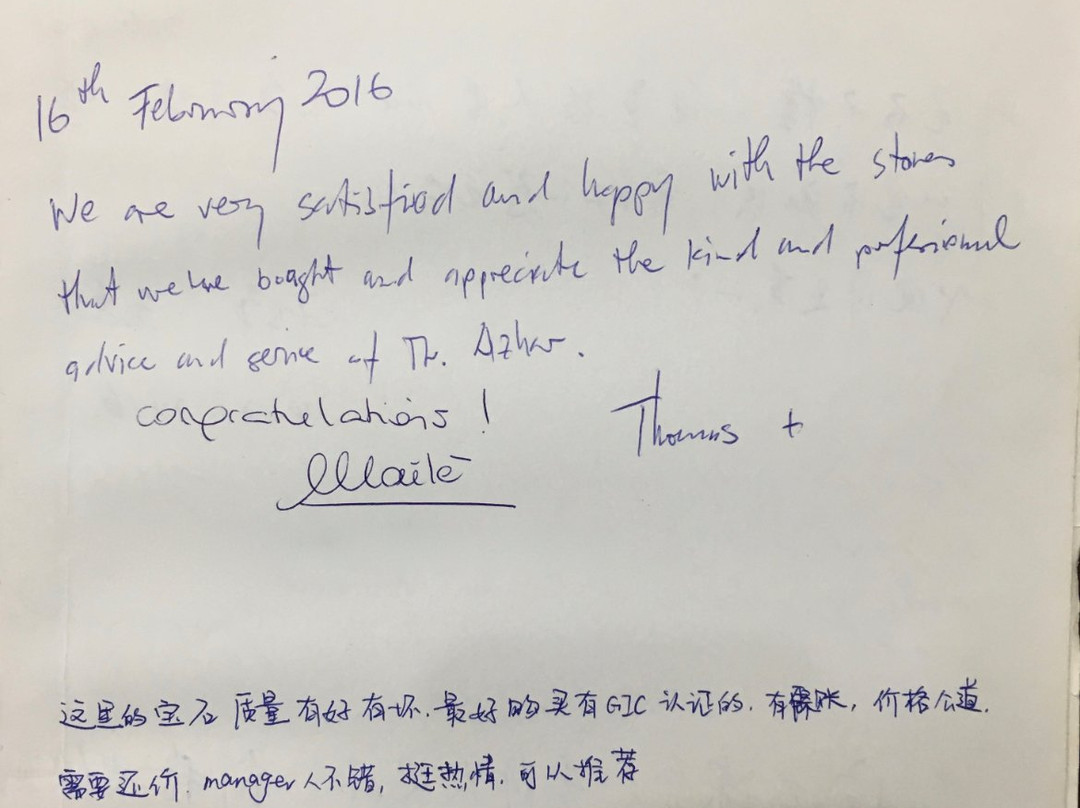 16th February 2016
We are very satisfied and happy with the stones
that we have bought and appreciate the kind and profesional
advice and service of Mr. Azhar.
congratulations!
Thomas +
Maïté
这里的宝石质量有好有坏.最好购买有GIC认证的.有保账,价格公道.
需要还价.manager人不错,挺热情.可以推荐